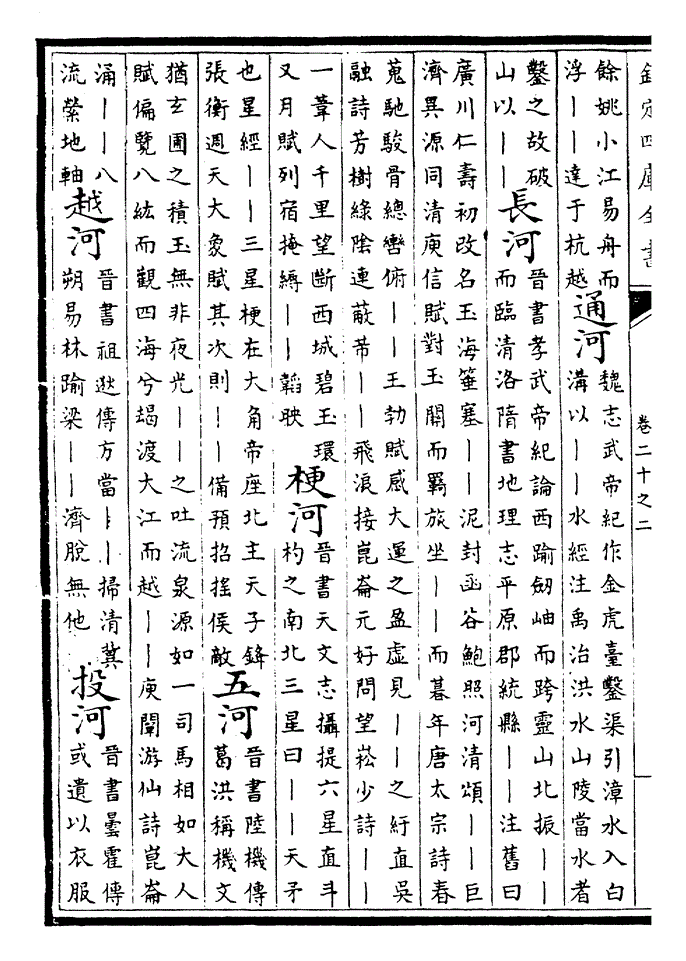 欽定四庫全書
卷二十之二
餘姚小江易舟而
浮——達于杭越
通河
魏志武帝紀作金虎臺鑿渠引漳水入白
溝以——水經注禹治洪水山陵當水者
鑿之故破
山以——
長河
晉書孝武帝紀論西踰劒岫而跨靈山北振——
而臨清洛隋書地理志平原郡統縣——注舊曰
廣川仁壽初改名玉海箑塞——泥封函谷鮑照河清頌——巨
濟異源同清庾信賦對玉關而羈旅坐——而暮年唐太宗詩春
蒐馳駿骨總轡俯——王勃賦感大運之盈虛見——之紆直吳
融詩芳樹綠陰連蔽芾——飛浪接崑崙元好問望崧少詩——
一葦人千里望斷西城碧玉環
又月賦列宿掩縟——韜映
梗河
晉書天文志攝提六星直斗
杓之南北三星曰——天矛
也星經——三星梗在大角帝座北主天子鋒
張衡週天大象賦其次則——備預招搖侯敵
五河
晉書陸機傳
葛洪稱機文
猶玄圃之積玉無非夜光——之吐流泉源如一司馬相如大人
賦偏覽八紘而觀四海兮朅渡大江而越——庾闡游仙詩崑崙
涌——八
流縈地軸
越河
晉書祖逖傳方當——掃清冀
朔易林踰梁——濟脫無他
投河
晉書曇霍傳
或遺以衣服